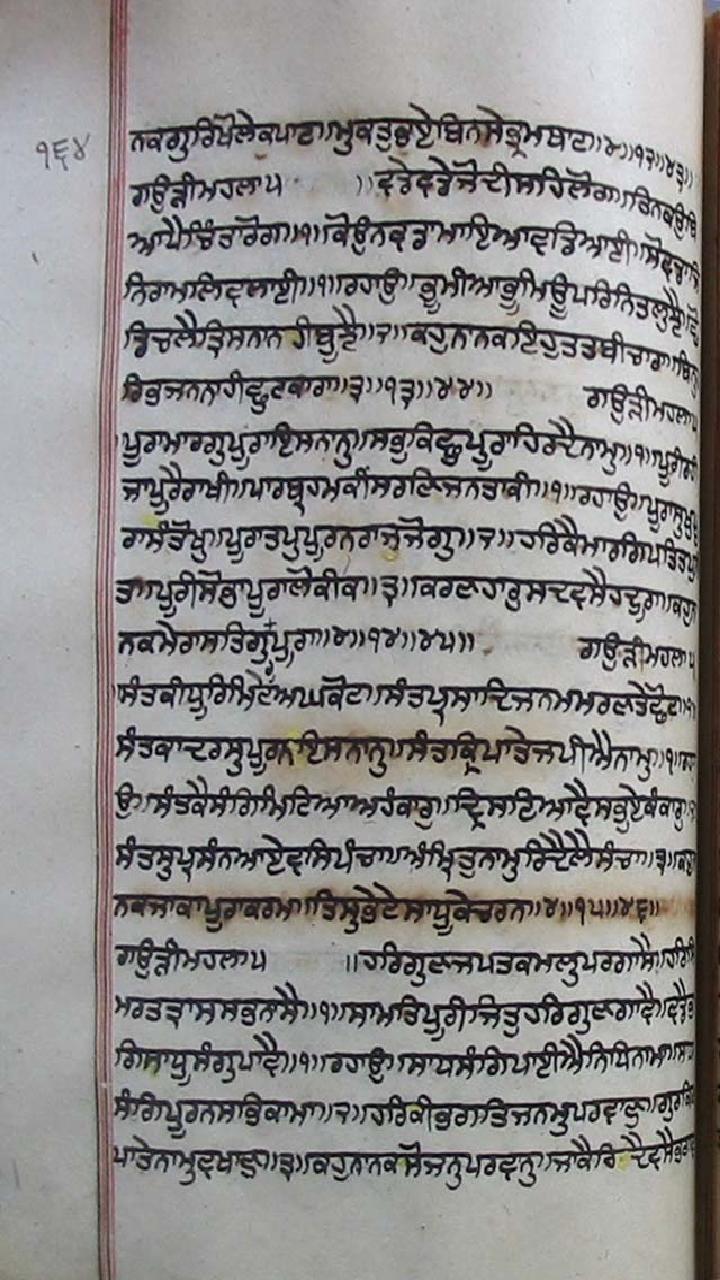 ੧੬੪
ਨਕਗੁਰਿਖੋਲੇਕਪਾਟ॥ਮੁਕਤੁਭਏਬਿਨਸੇਭ੍ਰਮਥਾਟ॥੪॥੧੨॥੪੩॥
ਗਉੜੀਮਹਲਾ੫ ॥ਵਡੇਵਡੇਜੋਦੀਸਹਿਲੋਗ॥ਤਿਨਕਉਬਿ
ਆਪੈਚਿੰਤਾਰੋਗ॥੧॥ਕੋਉਨਵਡਾਮਾਇਆਵਡਿਆਈ॥ਸੋਵਡਾਜਿ
ਨਿਰਾਮਲਿਵਲਾਈ॥੧॥ਰਹਾਉ॥ਭੂਮੀਆਭੂਮਿਊਪਰਿਨਿਤਲੁਝੈ॥ਛੋ
ਡਿਚਲੈਤ੍ਰਿਸਨਾਨਹੀਬੁਝੈ॥੨॥ਕਹੁਨਾਨਕਇਹੁਤਤਬੀਚਾਰਾ॥ਬਿਨੁ
ਰਿਭਜਨਨਾਹੀਛੁਟਕਾਰਾ॥੩॥੧੩॥੪੪॥ ਗਉੜੀਮਹਲਾ੫
ਪੂਰਾਮਾਰਗੁਪੂਰਾਇਸਨਾਨੁ॥ਸਭੁਕਿਛੁਪੂਰਾਹਿਰਦੈਨਾਮੁ॥੧॥ਪੂਰੀਰਹੀ
ਜਾਪੂਰੈਰਾਖੀ॥ਪਾਰਬ੍ਰਹਮਕੀਸਰਣਿਜਨਤਾਕੀ॥੧॥ਰਹਾਉ॥ਪੂਰਾਸੁਖੁਪੂ
ਰਾਸੰਤੋਖੁ॥ਪੂਰਾਤਪੁਪੂਰਨਰਾਜੁਜੋਗੁ॥੨॥ਹਰਿਕੈਮਾਰਗਿਪਤਿਤਪੁ
ਤਾ॥ਪੂਰੀਸੋਭਾਪੂਰਾਲੋਕੀਕ॥੩॥ਕਰਣਹਾਰੁਸਦਵਸੈਹਦੂਰਾ॥ਕਹੁਨਾ
ਨਕਮੇਰਾਸਤਿਗੁਰੁਪੂਰਾ॥੪॥੧੪॥੪੫॥ ਗਉੜੀਮਹਲਾ੫
ਸੰਤਕੀਧੂਰਿਮਿਟੇਅਘਕੋਟ॥ਸੰਤਪ੍ਰਸਾਦਿਜਨਮਮਰਣਤੇਛੋਟ॥੧॥
ਸੰਤਕਾਦਰਸੁਪੂਰਨਇਸਨਾਨੁ॥ਸੰਤਕ੍ਰਿਪਾਤੇਜਪੀਐਨਾਮੁ॥੧॥ਰਹਾ
ਉ॥ਸੰਤਕੈਸੰਗਿਮਿਟਿਆਅਹੰਕਾਰੁ॥ਦ੍ਰਿਸਟਿਆਵੈਸਭੁਏਕੰਕਾਰੁ॥੨
ਸੰਤਸੁਪ੍ਰਸੰਨਆਏਵਸਿਪੰਚਾ॥ਅੰਮ੍ਰਿਤੁਨਾਮੁਰਿਦੈਲੈਸੰਚਾ॥੩॥ਕਹੁ
ਨਕਜਾਕਾਪੂਰਾਕਰਮ॥ਤਿਸੁਭੇਟੇਸਾਧੂਕੇਚਰਨ॥੪॥੧੫॥੪੬॥
ਗਉੜੀਮਹਲਾ੫ ॥ਹਰਿਗੁਣਜਪਤਕਮਲੁਪਰਗਾਸੈ॥ਹਰਿਸਿ
ਮਰਤਤ੍ਰਾਸਸਭਨਾਸੈ॥੧॥ਸਾਮਤਿਪੂਰੀਜਿਤੁਹਰਿਗੁਣਗਾਵੈ॥ਵਡੈਭਾ
ਗਿਸਾਧੂਸੰਗੁਪਾਵੈ॥੧॥ਰਹਾਉ॥ਸਾਧਸੰਗਿਪਾਈਐਨਿਧਿਨਾਮਾ॥ਸਾਧ
ਸੰਗਿਪੂਰਨਸਭਿਕਾਮਾ॥੨॥ਹਰਿਕੀਭਗਤਿਜਨਮੁਪਰਵਾਣੁ॥ਗੁਰਕਿਰ
ਪਾਤੇਨਾਮੁਵਖਾਣੁ॥੩॥ਕਹੁਨਾਨਕਸੋਜਨੁਪਰਵਾਨੁ॥ਜਾਕੈਰਿਦੈਵਸੈਭਗਵਾ